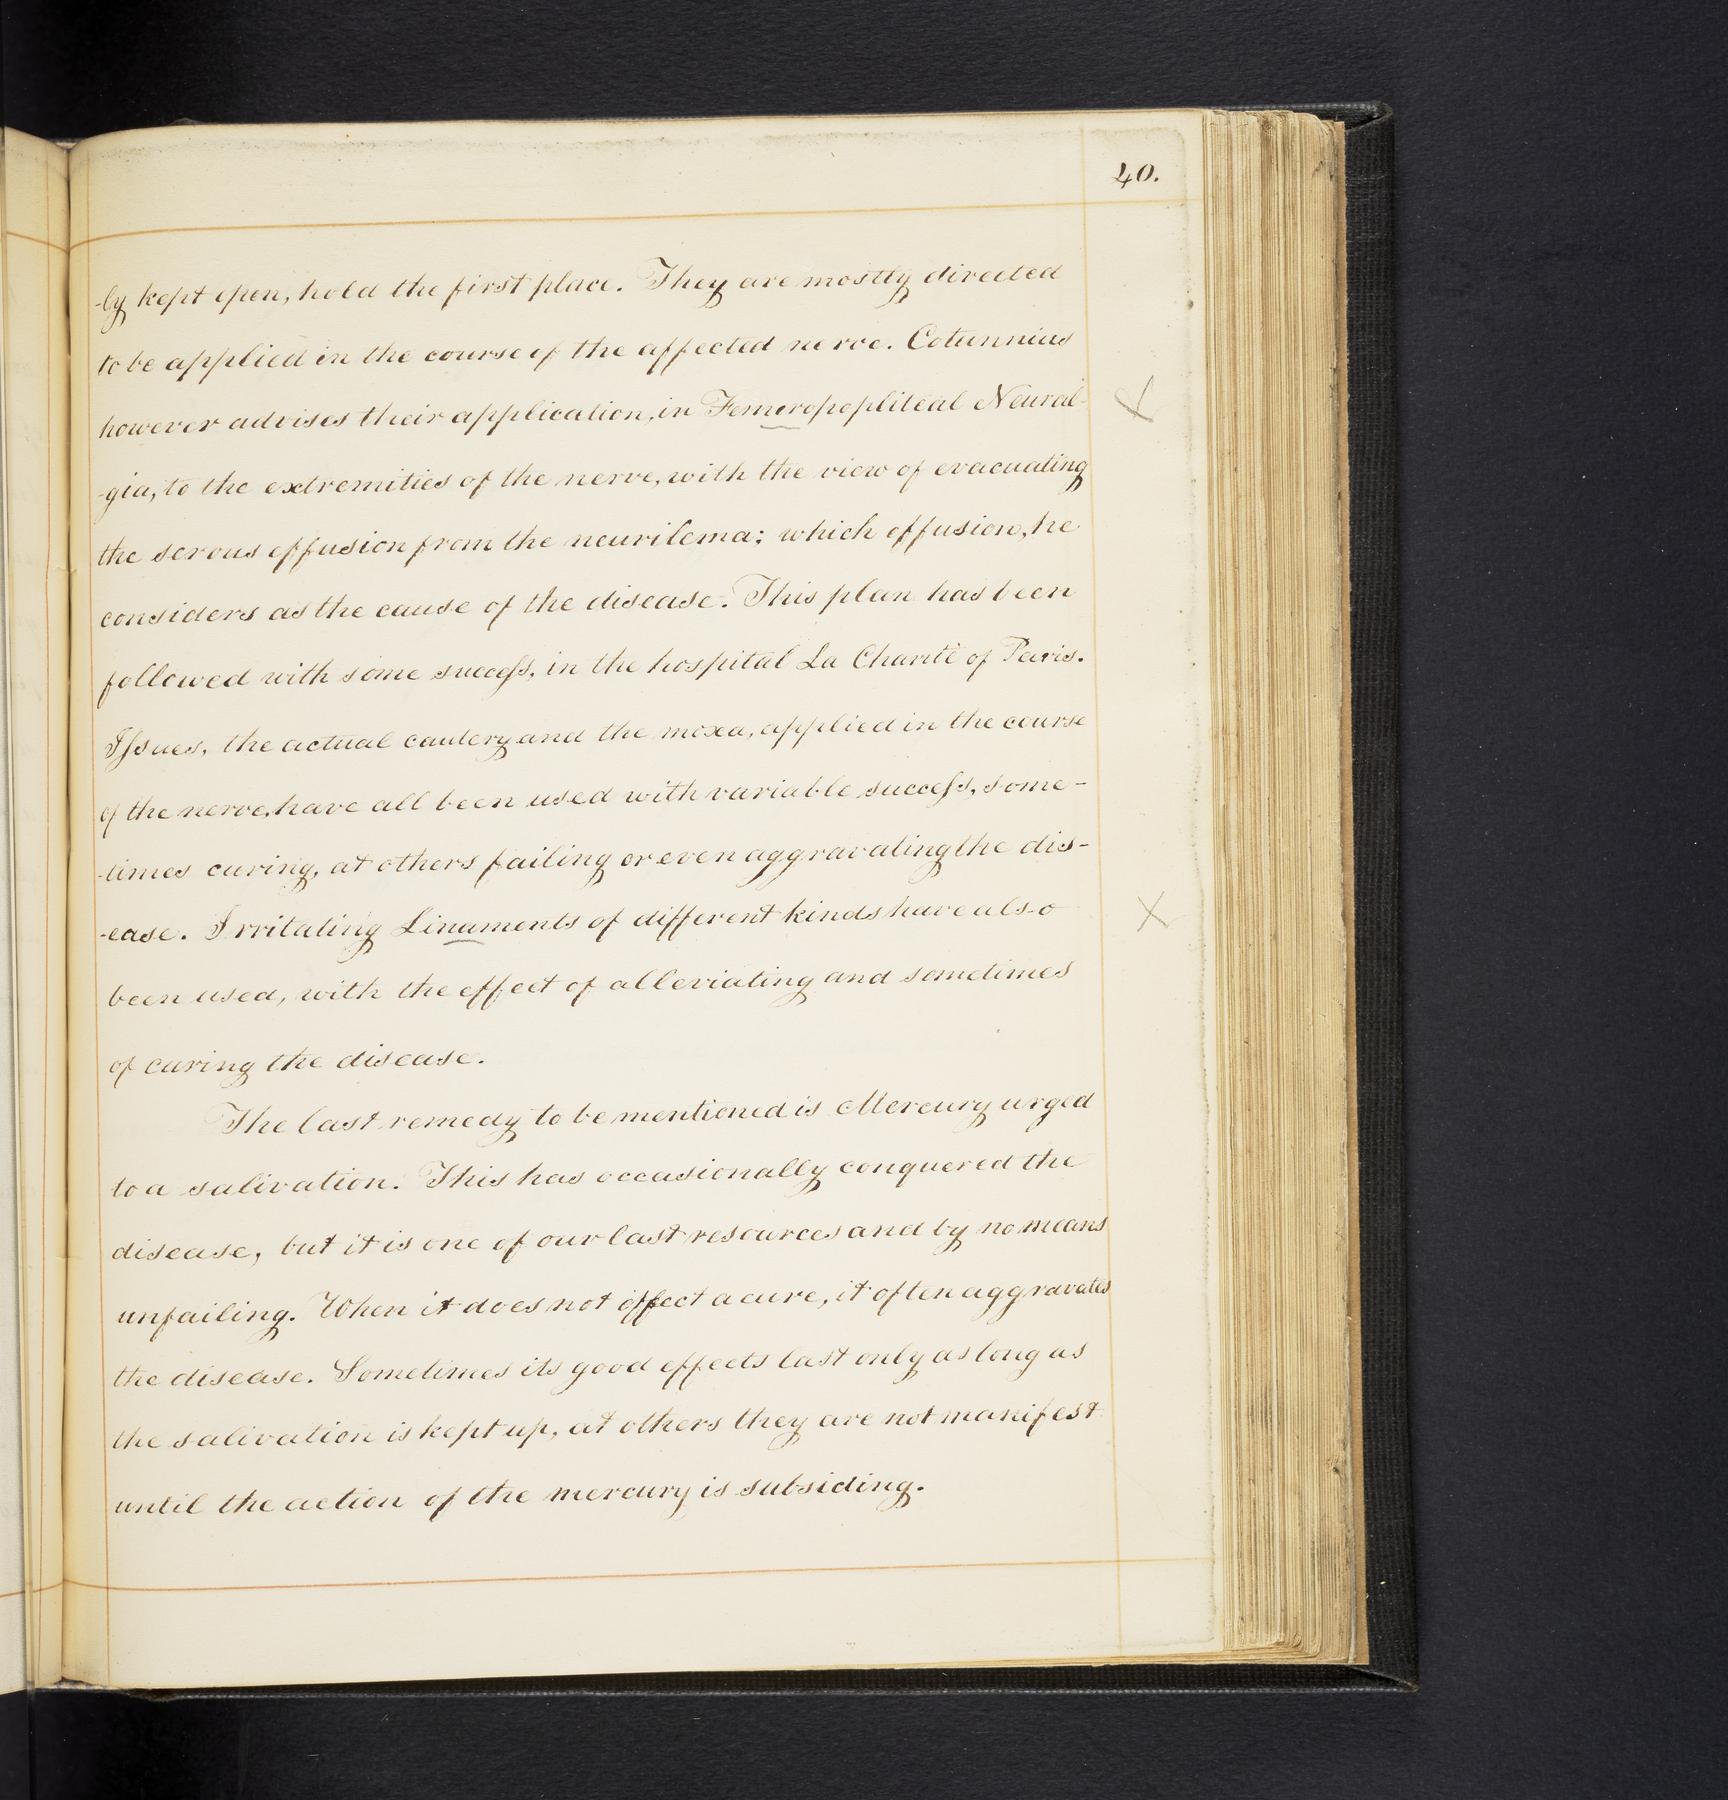 40.
-ly kept open, hold the first place. They are mostly directed
to be applied in the course of the affected nerve. Cotunnius
however advises their application, in Femeropopliteal Neural-
-gia, to the extremities of the nerve, with the view of evacuating
the serous effusion from the neurilema; which effusion, he
considers as the cause of the disease. This plan has been
followed with some success, in the hospital La Charité of Paris.
Issues, the actual cautery and the moxa, applied in the course
of the nerve, have all been used with variable success, some-
-times curing, at others failing or even aggravating the dis-
-ease. Irritating Linaments of different kinds have also
been used, with the effect of alleviating and sometimes
of curing the disease.
The last remedy to be mentioned is Mercury urged
to a salivation. This has occasionally conquered the
disease, but it is one of our last resources and by no means
unfailing. When it does not effect a cure, it often aggravates
the disease. Sometimes its good effects last only as long as
the salivation is kept up, at others they are not manifest
until the action of the mercury is subsiding.